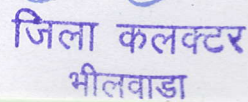 जिला कलक्टर
भीलवाडा